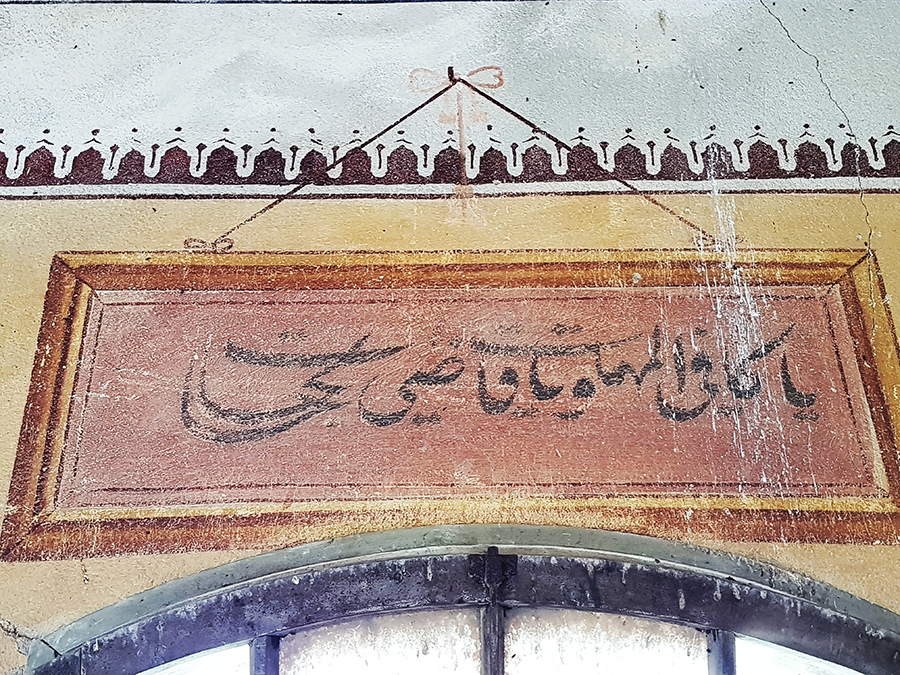 يا كافي المهمات يا قاضي الحاجات